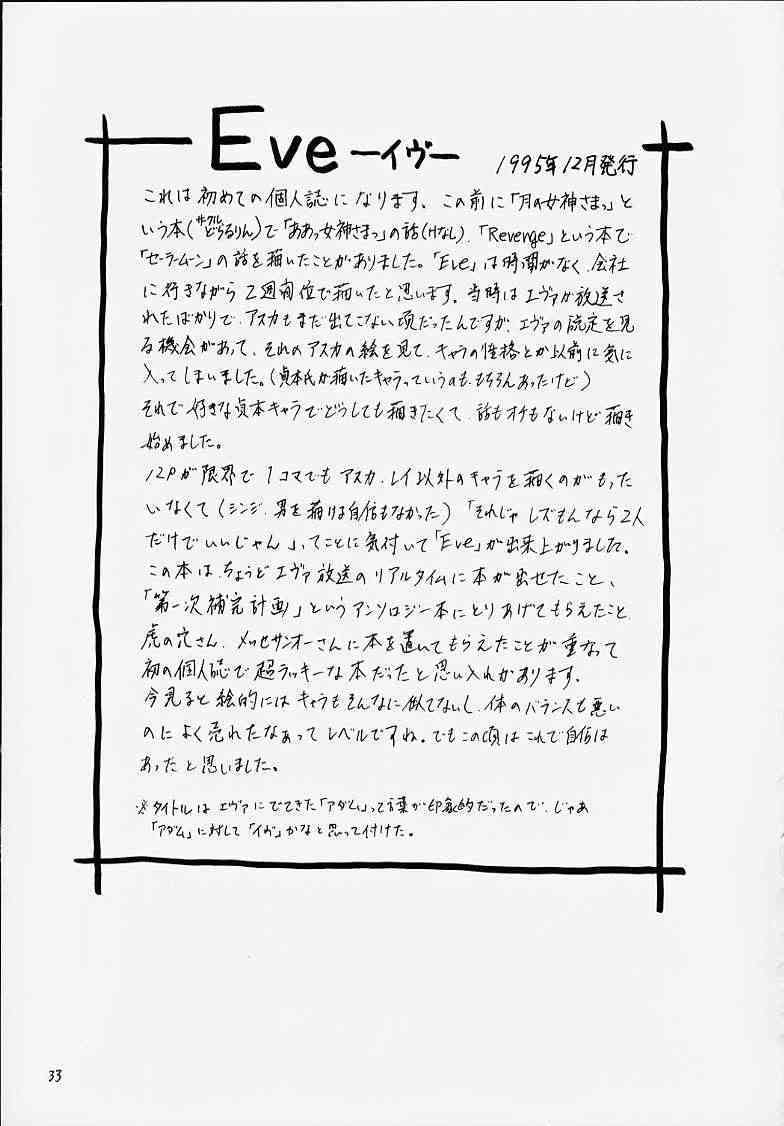 Eve ―イヴ― 1995年12月発行
これは初めての個人誌になります、この前に「月の女神さまっ」と
いう本(サークルどらるりん)で「ああっ女神さまっ」の話(Hなし)、「Revenge」という本で
「セーラームーン」の話を描いたことがありました。「Eve」は時間がなく、会社
に行きながら2週間位で描いたと思います。当時はエヴァが放送さ
れたばかりで、アスカもまだ出てこない頃だったんですが、エヴァの設定を見
る機会があって、それのアスカの絵を見て、キャラの性格とか以前に気に
入ってしまいました。(貞本氏が描いたキャラっていうのも、もちろんあったけど)
それで好きな貞本キャラでどうしても描きたくて、話もオチもないけど描き
始めました。
12Pが限界で1コマでもアスカ、レイ以外のキャラを描くのがもった
いなくて(シンジ、男を描ける自信もなかった)「それじゃレズもんなら2人
だけでいいじゃん」ってことに気付いて「Eve」が出来上がりました。
この本は、ちょうどエヴァ放送のリアルタイムに本が出せたこと、
「第一次補完計画」というアンソロジー本にとりあげてもらえたこと、
虎の穴さん、メッセサンオーさんに本を置いてもらえたことが重なって
初の個人誌で超ラッキーな本だったと思い入れがあります。
今見ると絵的にはキャラもそんなに似てないし、体のバランスも悪い
のによく売れたなぁってレベルですね。でもこの頃はこれで自信は
あったと思いました。
※タイトルはエヴァにでてきた「アダム」って言葉が印象的だったので、じゃあ
「アダム」に対して「イヴ」かなと思って付けた。
33